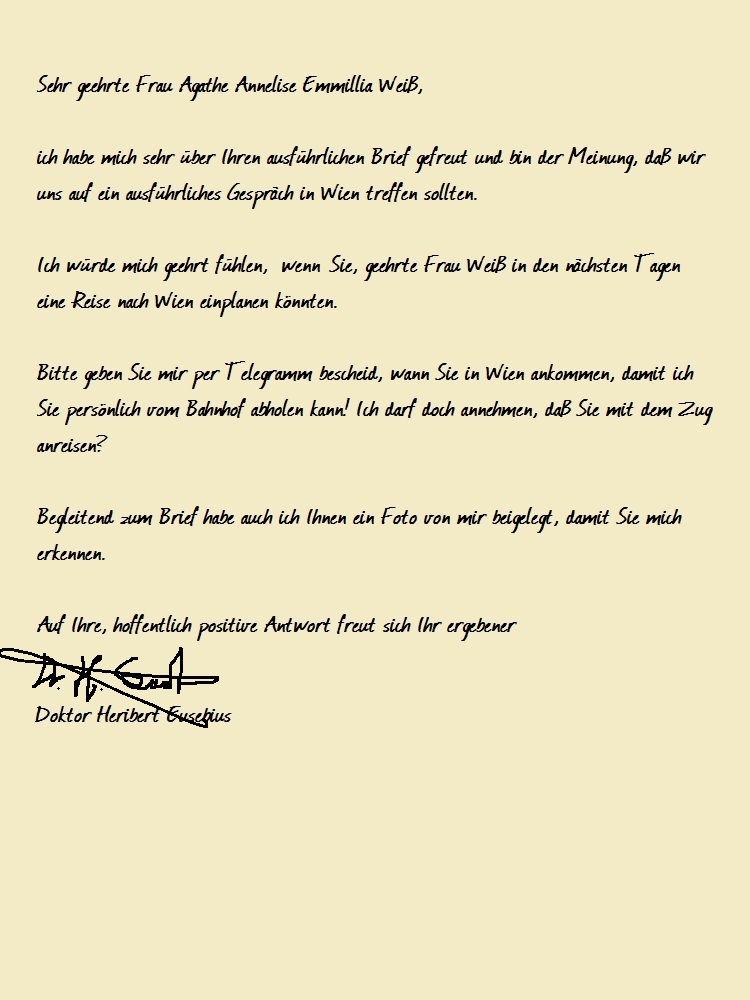 Sehr geehrte Frau Agathe Annelise Emmillia Weiß,
ich habe mich sehr über Ihren ausführlichen Brief gefreut und bin der Meinung, daß wir
uns auf ein ausführliches Gespräch in Wien treffen sollten.
Ich würde mich geehrt fühlen, wenn Sie, geehrte Frau Weiß in den nächsten Tagen
eine Reise nach Wien einplanen könnten.
Bitte geben Sie mir per Telegramm bescheid, wann Sie in Wien ankommen, damit ich
Sie persönlich vom Bahnhof abholen kann! Ich darf doch annehmen, daß Sie mit dem Zug
anreisen?
Begleitend zum Brief habe auch ich Ihnen ein Foto von mir beigelegt, damit Sie mich
erkennen.
Auf Ihre, hoffentlich positive Antwort freut sich Ihr ergebener
Doktor Heribert Eusebius